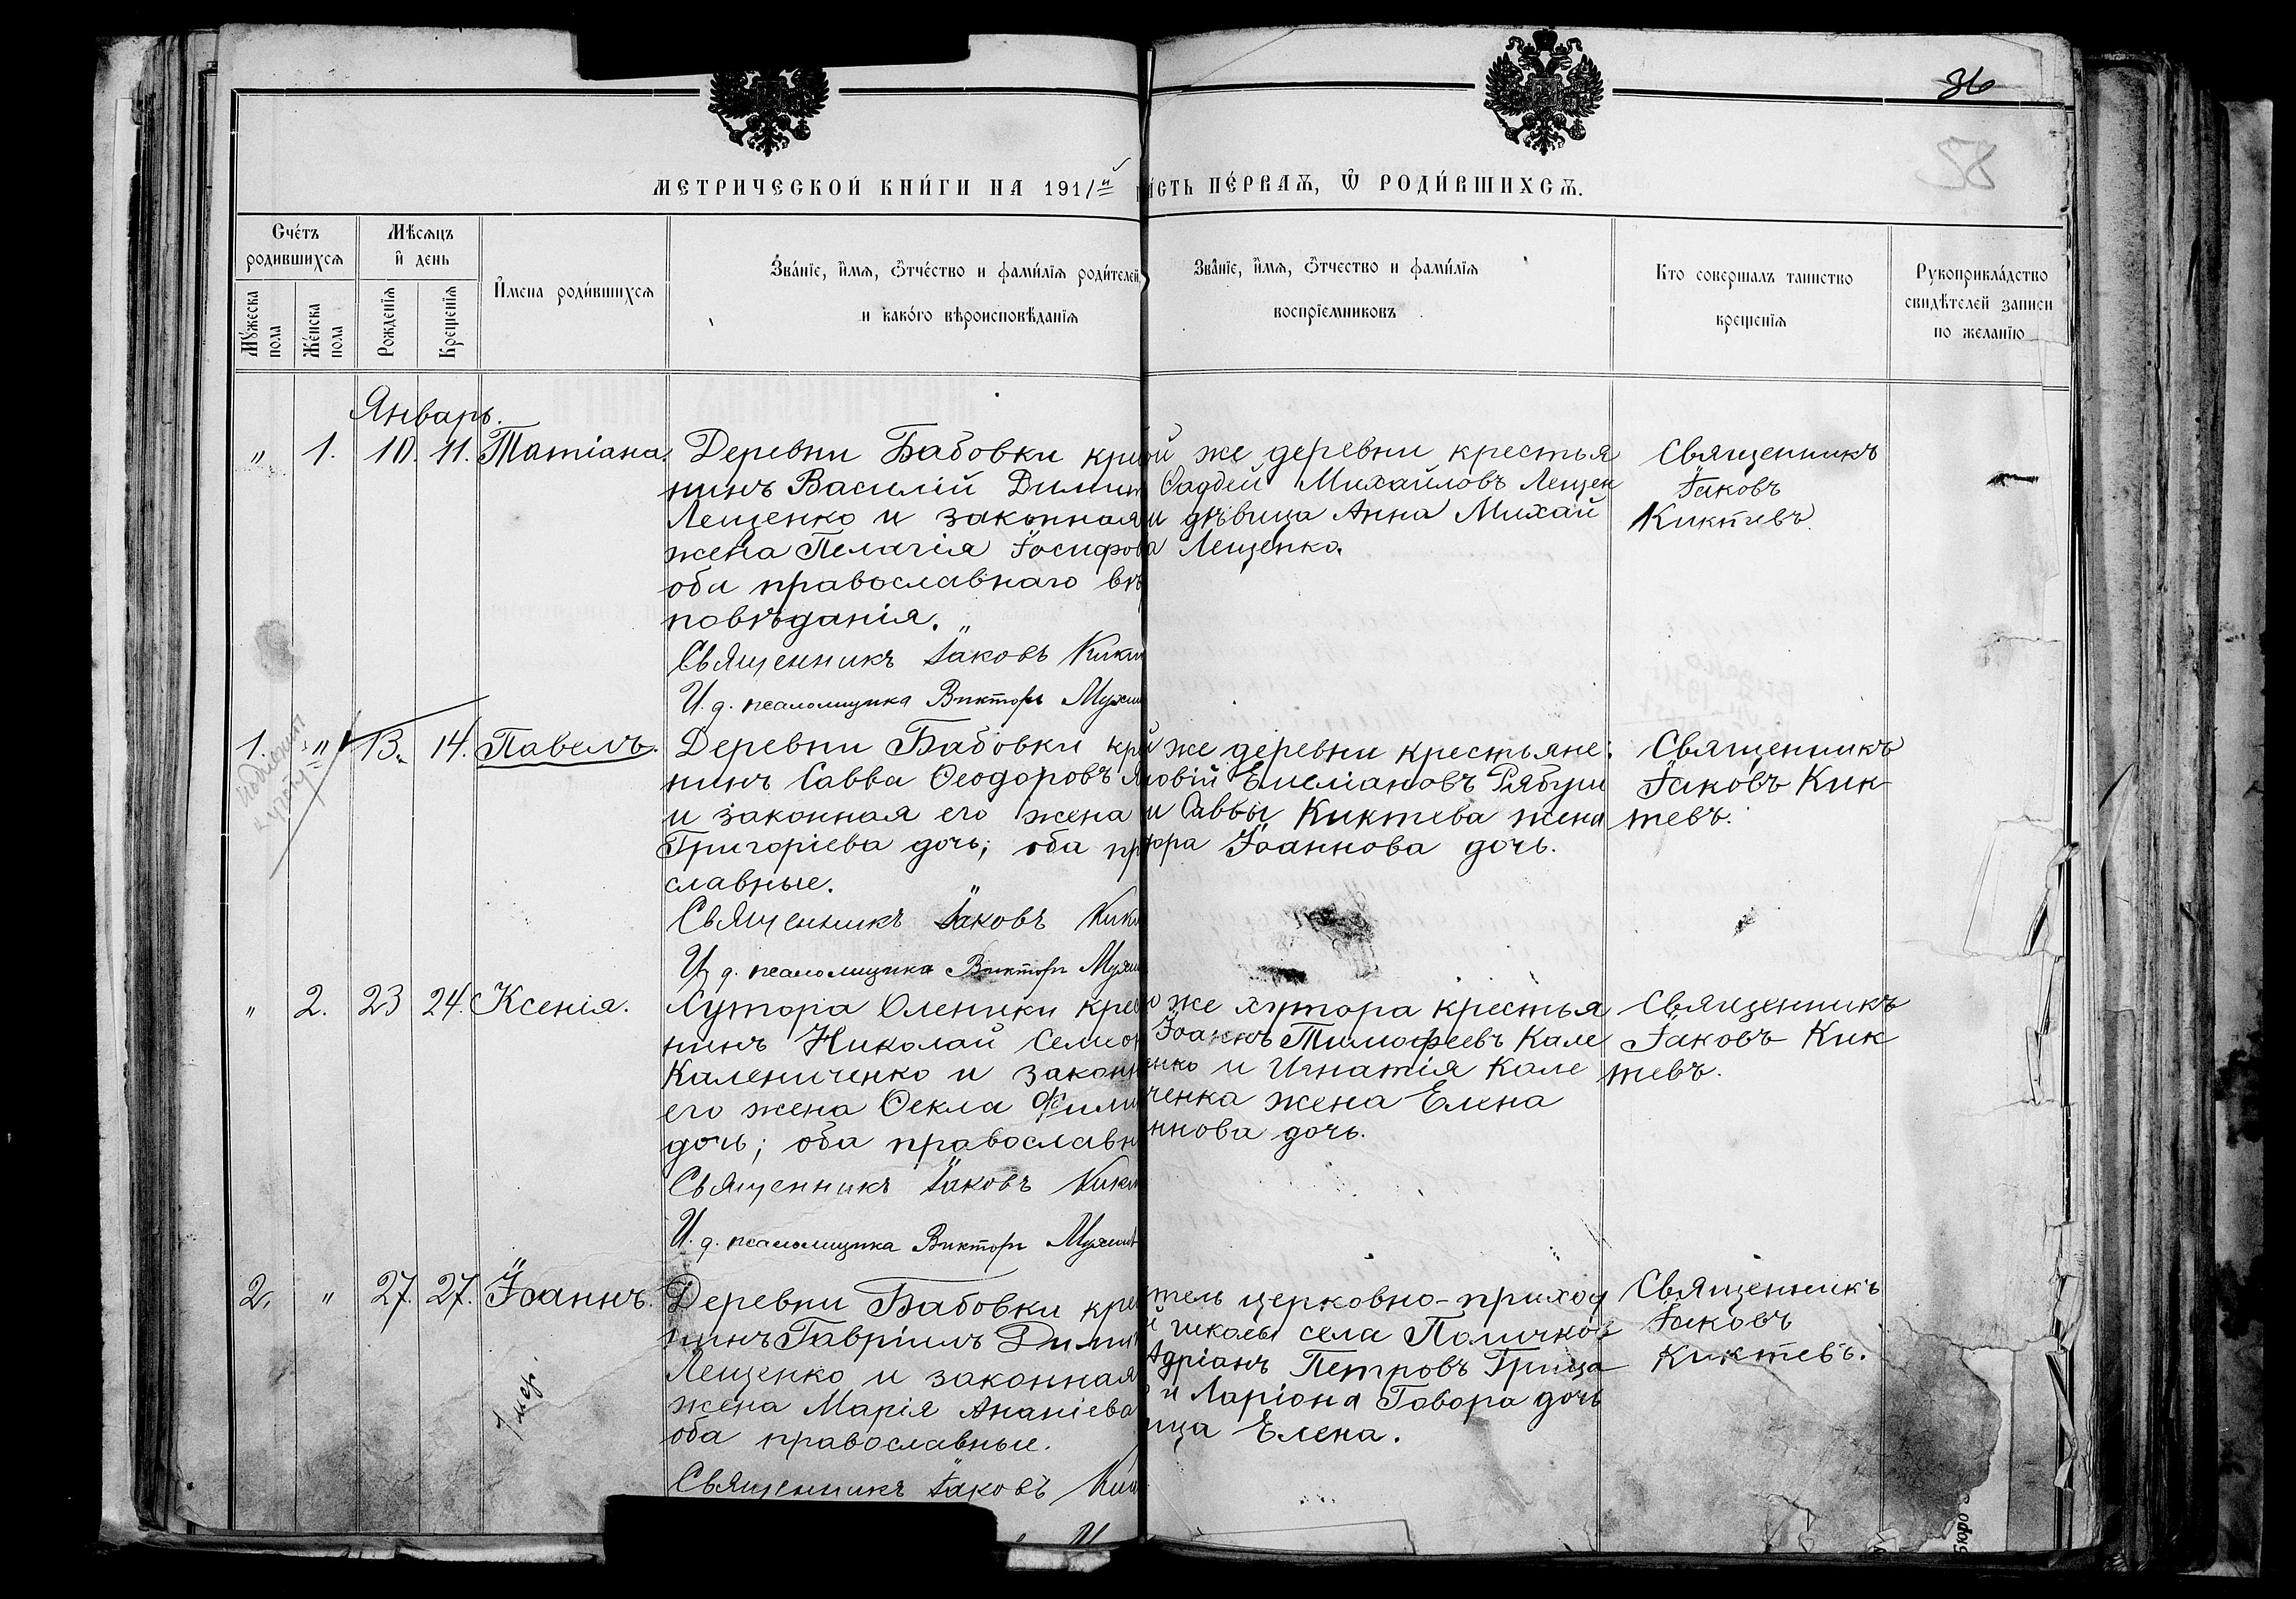 36
58
МЕТРИЧЕСКОЙ КНИ́ГИ НА 1911й
ЧА́СТЬ ПЕ́РВАѦ, Ѿ РОДИ́ВШИХСѦ.
Сче́тъ родившихсѧ
Мꙋ́жеска пола
Же́нска пола
Мѣсѧцъ и҆ день
Рожденїѧ
Крещенїѧ
И҆мена роди́вшихсѧ
Зва́нїе, и҆мѧ, ѻ҆тче́ство и фами́лїѧ роди́телей,
и како́го вѣроисповѣданїѧ
Зва́нїе, и҆мѧ, ѻ҆тчество и фами́лїѧ
воспрїемниковъ
Кто совершалъ таинство
крещенїѧ
Рукоприкла́дство
свидѣтелей записи
по желанїю
Январь.
" 1. 10. 11. Татіана.
Деревни Бабовки кре
нинъ Василій Дими
Лещенко и законная
жена Пелагія Іосифов
оба православнаго вѣ
повѣданія.
Священникъ Іаковъ Кик
И. д. псаломщика Викторъ Мух
й же деревни крестья
Ѳаддей Михайловъ Лещен
и дѣвица Анна Михай
а Лещенко.
Священникъ
Іаковъ
Киктевъ.
1. " 13. 14. Павелъ.
Деревни Бабовки кр
нинъ Савва Ѳеодоровъ
и законная его жена
Григоріева дочь; оба пр
славные.
Священникъ Іаковъ Кик
И. д. псаломщика Викторъ Мух
же деревни крестьяне:
овій Емеліановъ Рябуш
и Саввы Киктева жена
ора Іоаннова дочь.
Священникъ
Іаковъ Кик
тевъ.
" 2. 23 24. Ксенія.
Хутора Оленики кре
нинъ Николай Семіон
Калениченко и законн
его жена Ѳекла Фили
дочь; оба православн
Священникъ Іаковъ Кик
И. д. псаломщика Викторъ Мух
же хутора крестья
Іоаннъ Тимофеевъ Кале
енко и Игнатія Кале
ченка жена Елена
ннова дочь.
Священникъ
Іаковъ Кик
тевъ.
2. " 27. 27. Іоаннъ.
умер.
Деревни Бабовки кре
нинъ Гавріилъ Дими
Лещенко и законная
жена Марія Ананіева
оба православные.
Священникъ Іаковъ Ки
тель церковно-приход
школы села Поличков
Адріанъ Петровъ Грица
и Ларіона Говора дочь
ица Елена.
Священникъ
Іаковъ
Киктевъ.
Бюро